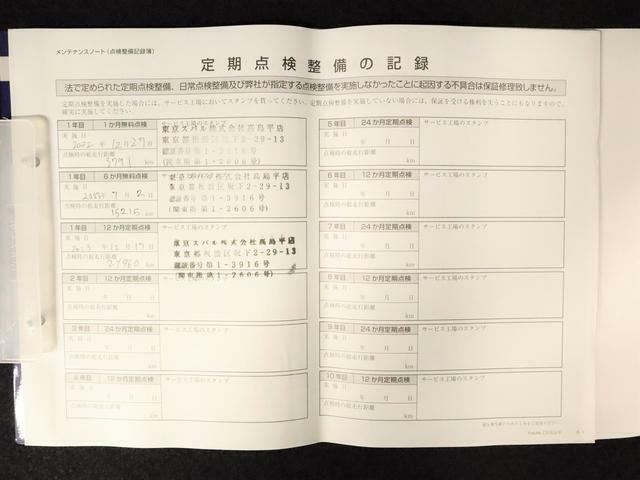 メンテナンスノート(点検整備記録簿)
定期点検整備の記録
法で定められた定期点検整備、日常点検整備及び弊社が指定する点検整備を実施しなかったことに起因する不具合は保証修理致しません。
定期点検整備を実施した場合には、サービス工場においてスタンプを貰ってください。定期点検整備を実施していない場合には、保証を受ける権利を失うことにもなりますので、
確実に実施してください。
1年目 1か月無料点検 サービス工場のスタンプ
実施日
2022年12月27日
点検時の総走行距離
5791 km
東京スバル株式会社高島平店
東京都板橋区坂下2-29-13
認証番号第1-3916号
(関東指第1-2606号)
1年目 6か月無料点検 サービス工場のスタンプ
実施日
2023年7月2日
点検時の総走行距離
15215 km
東京スバル株式会社高島平店
東京都板橋区坂下2-29-13
認証番号第1-3916号
(関東指第1-2606号)
1年目 12か月定期点検 サービス工場のスタンプ
実施日
2023年12月17日
点検時の総走行距離
km
東京スバル株式会社高島平店
東京都板橋区坂下2-29-13
認証番号第1-3916号
(関東指第1-2606号)
2年目 12か月定期点検 サービス工場のスタンプ
実施日
年 月 日
点検時の総走行距離
km
3年目 24か月定期点検 サービス工場のスタンプ
実施日
年 月 日
点検時の総走行距離
km
4年目 12か月定期点検 サービス工場のスタンプ
実施日
年 月 日
点検時の総走行距離
km
5年目 24か月定期点検 サービス工場のスタンプ
実施日
年 月 日
点検時の総走行距離
km
6年目 12か月定期点検 サービス工場のスタンプ
実施日
年 月 日
点検時の総走行距離
km
7年目 24か月定期点検 サービス工場のスタンプ
実施日
年 月 日
点検時の総走行距離
km
8年目 12か月定期点検 サービス工場のスタンプ
実施日
年 月 日
点検時の総走行距離
km
9年目 24か月定期点検 サービス工場のスタンプ
実施日
年 月 日
点検時の総走行距離
km
10年目 12か月定期点検 サービス工場のスタンプ
実施日
年 月 日
点検時の総走行距離
km